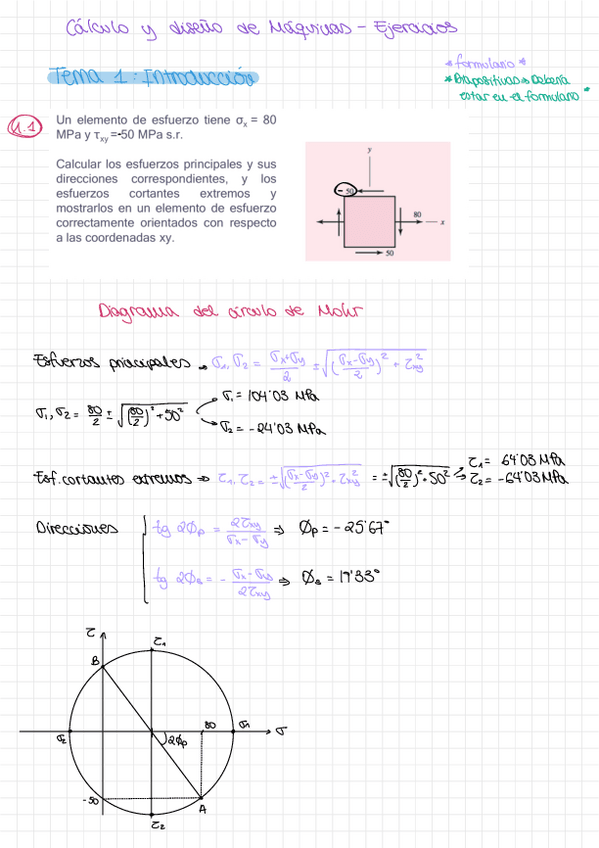 Cálculo y diseño de Máquinas - Ejercicios
* formulario *
Tema 1: Introducción
* Diapositivas → Debería
estar en el formulario *
1.1
Un elemento de esfuerzo tiene σx = 80
MPa y τxy =-50 MPa s.r.
Calcular los esfuerzos principales y sus
direcciones correspondientes, y los
esfuerzos cortantes extremos y
mostrarlos en un elemento de esfuerzo
correctamente orientados con respecto
a las coordenadas xy.
y
- 50
80
x
50
Diagrama del círculo de Mohr
Esfuerzos principales → σ1, σ2 = (σx+σy)/2 ± √((σx-σy)/2)² + τxy²
σ1, σ2 = 80/2 ± √(80/2)² + 50²
σ1 = 104'03 MPa
σ2 = -24'03 MPa
Esf. cortantes extremos → τ1, τ2 = ±√((σx-σy)/2)² + τxy² = ±√(80/2)² + 50²
τ1 = 64'03 MPa
τ2 = -64'03 MPa
Direcciones
tg 2Øp = 2τxy/(σx - σy) ⇒ Øp = -25'67°
tg 2Øs = - (σx - σy)/2τxy ⇒ Øs = 19'33°
τ
τ1
B
80
σ1
σ
σ2
2Øp
-50
A
τ2